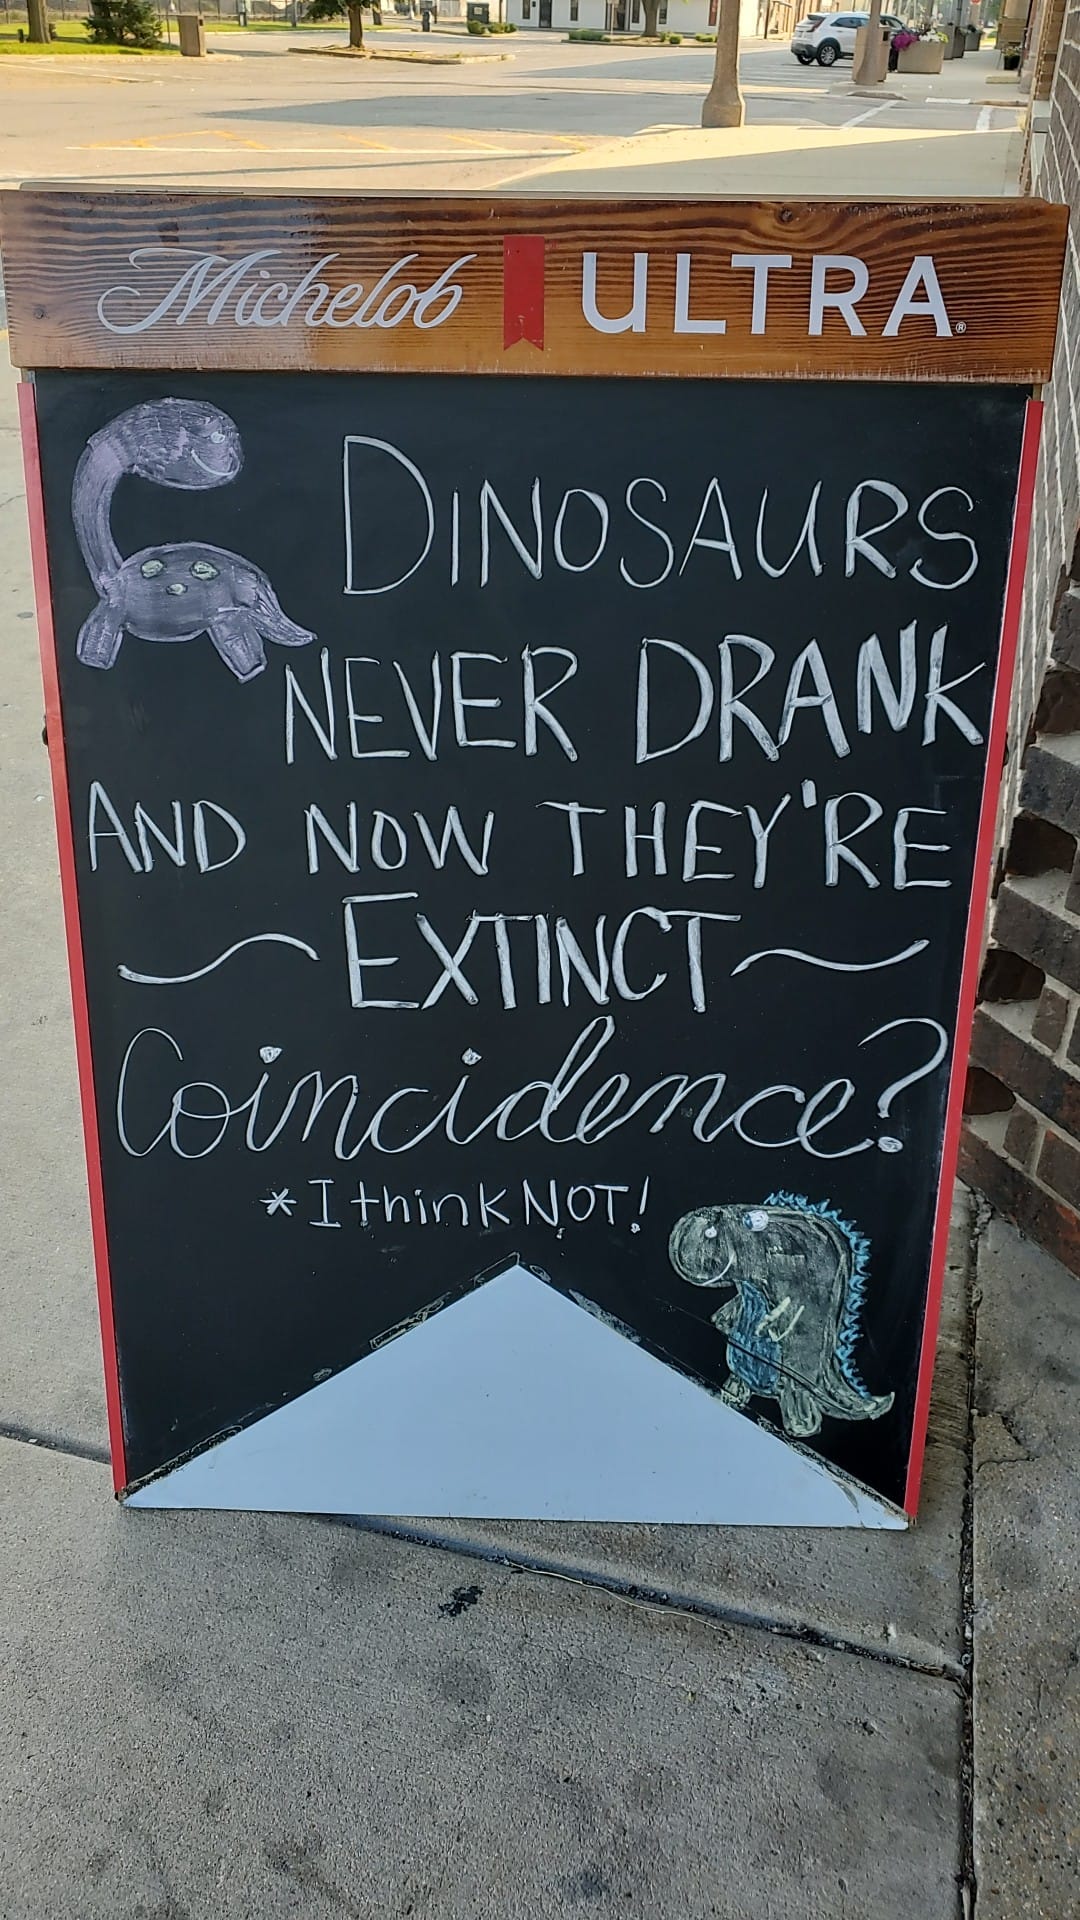 Michelob ULTRA®
DINOSAURS
NEVER DRANK
AND NOW THEY'RE
~ EXTINCT ~
Coincidence?
*I think NOT!